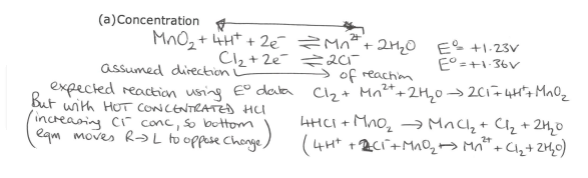 (a) Concentration
MnO₂ + 4H⁺ + 2e⁻ ⇌ Mn²⁺ + 2H₂O E⁰= +1.23V
Cl₂ + 2e⁻ ⇌ 2Cl⁻ E⁰= +1.36V
assumed direction of reaction
expected reaction using E⁰ data Cl₂ + Mn²⁺ + 2H₂O → 2Cl⁻ + 4H⁺ + MnO₂
But with HOT CONCENTRATED HCl
(increasing Cl⁻ conc, so bottom 4HCl + MnO₂ → MnCl₂ + Cl₂ + 2H₂O
eqm moves R→L to oppose change) (4H⁺ + 2Cl⁻ + MnO₂ → Mn²⁺ + Cl₂ + 2H₂O)